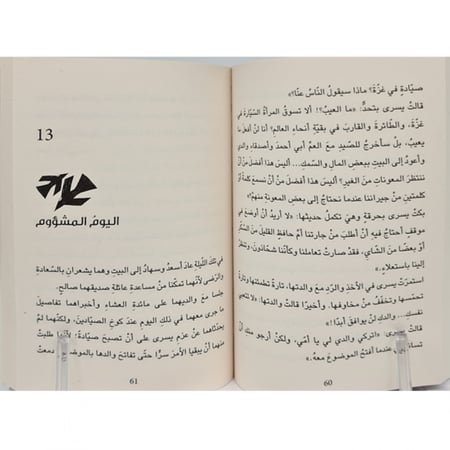 صيّادةٍ في غزّة؟ ماذا سيقولُ النّاسُ عنّا؟»
قالتْ يسرى بتحدٍّ: «ما العيبُ؟! ألا تسوقُ المرأةُ السّيّارةَ في
غزّةَ، والطّائرةَ والقاربَ في بقيّةِ أنحاءِ العالمِ؟ أنا لنْ أفعلَ ما
يعيبُ، بل سأخرجُ للصّيدِ معَ العمِّ أبي أحمد وأصدقاءِ والدي
وأعودُ إلى البيتِ ببعضِ المالِ والسّمكِ... أليسَ هذا أفضلَ منْ أنْ
ننتظرَ المعوناتِ منَ الغيرِ؟ أليسَ هذا أفضلَ منْ أنْ نسمعَ كلمةً أوْ
كلمتينِ منْ جيرانِنا عندما نحتاجُ إلى بعضِ المعونةِ منهمْ؟»
بكتْ يسرى بحرقةٍ وهيَ تكملُ حديثَها: «لا أريدُ أنْ أوضعَ في
موقفٍ أحتاجُ فيهِ أنْ أطلبَ منْ جارتِنا أمِّ حافظٍ القليلَ منَ السّكّرِ
أوْ بعضًا منَ الشّايِ. فقدْ صارتْ تعاملُنا وكأنّنا شحّاذونَ، وتنظرُ
إلينا باستعلاءٍ.»
استمرّتْ يسرى في الأخذِ والرّدِ معَ والدتِها، تارةً تطمئنُها وتارةً
تحمّسُها وتخفّفُ منْ مخاوفِها، وأخيرًا قالتْ والدتُها: «لا
نفسكِ... والدكِ لنْ يوافقَ أبدًا!»
قالتْ يسرى: «اتركي والدي لي يا أمّي، ولكنْ أرجو منكِ أنْ
عندما أفتحُ الموضوعَ معهُ.»
60
13
اليومُ المشؤوم
في تلكَ اللّيلةِ عادَ أسعدُ وسهادُ إلى البيتِ وهما يشعرانِ بالسّعادةِ
والرّضى لأنّهما تمكّنا منْ مساعدةِ عائلةِ صديقِهما صالحٍ.
جلسا معَ والديهما على مائدةِ العشاءِ وأخبراهما تفاصيلَ
ما جرى معهما في ذلكَ اليومِ عندَ كوخِ الصّيّادينَ، ولكنّهما لمْ
عنْ عزمِ يسرى على أنْ تصبحَ صيّادةً؛ لأنّها طلبتْ
منهما أنْ يبقيا الأمرَ سرًّا حتّى تفاتحَ والدَها بالموضوعِ. دمعتْ
61